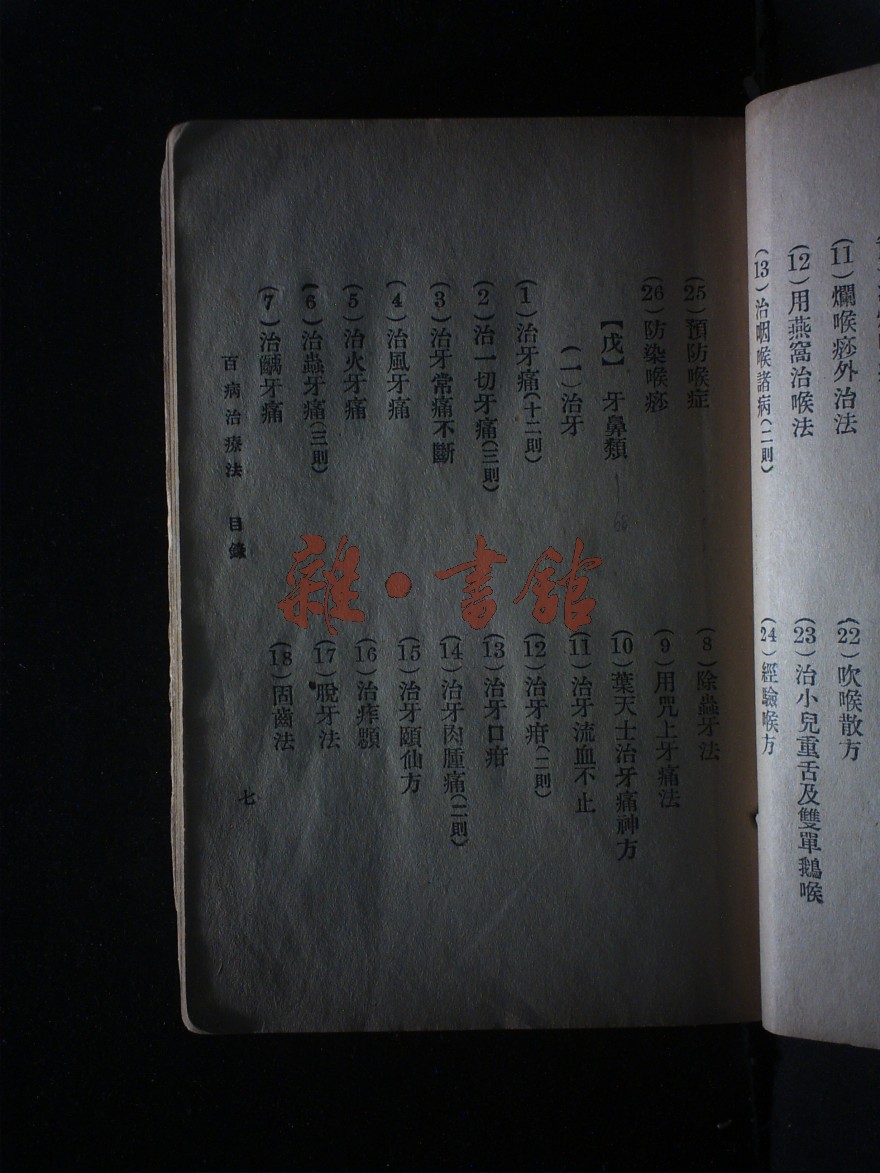 (11)爛喉痧外治法
(12)用燕窩治喉法
(13)治咽喉諸病(二則)
(22)吹喉散方
(23)治小兒重舌及雙單鵝喉
(24)經驗喉方
(25)預防喉症
(26)防染喉痧
【戊】 牙鼻類
(一)治牙
(1)治牙痛(十二則)
(2)治一切牙痛(三則)
(3)治牙常痛不斷
(4)治風牙痛
(5)治火牙痛
(6)治蟲牙痛(三則)
(7)治齲牙痛
(8)除蟲牙法
(9)用咒上牙痛法
(10)葉天士治牙痛神方
(11)治牙流血不止
(12)治牙疳(二則)
(13)治牙口疳
(14)治牙肉腫痛(二則)
(15)治牙頤仙方
(16)治痄顋
(17)脫牙法
(18)固齒法
百病治療法 目錄
七
雜·書館